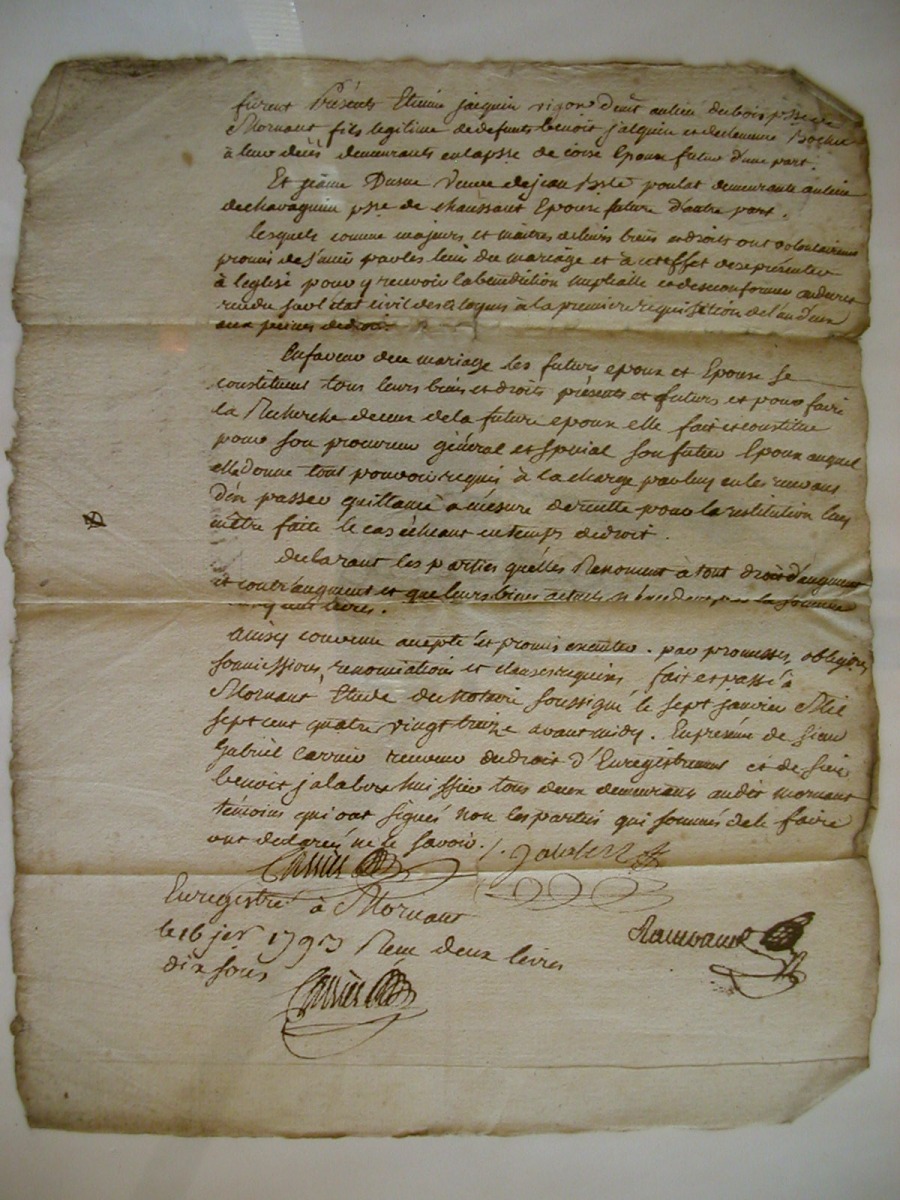 furent Présents Etienne jacquin vigneron au lieu dubois psse de
Mornant fils legitime de defunts benoit jacquin et de
à leur décès demeurants en la psse de Epoux futur d'une part.
Et jeanne Veuve de jean poulat demeurante au lieu
de chavaguin psse de chaussant Epouse future d'autre part.
lesquels comme majeurs et maitres de leurs biens et droits ont volontairement
promis de s'unir par les liens du mariage et à cet effet de se présenter
à l'eglise pour y recevoir la bénédiction nuptialle et de se conformer au decret
rendu sur l'état civil des à la premiere requisition de l'un d'eux
aux peines de droit.
En faveur du mariage les futurs epoux et Epouse se
constituent tous leurs biens et droits présents et futurs et pour faire
la Recherche de ceux de la future epouse elle fait et constitue
pour son procureur général et special son futur Epoux auquel
elle donne tout pouvoir requis à la charge par luy en les recevant
d'en passer quittance à mesure de recette pour la restitution luy
en être faite le cas échéant en temps de droit.
declarant les parties qu'elles Renoncent à tout droit d'augment
et contr'augment et que leurs biens actuels n'excedent pas la somme
livres.
Ainsy convenu accepté et promis executer. par promesses, obligations,
soumissions, renonciations et clauses requises. fait et passé à
Mornant Etude du notaire soussigné le sept janvier Mil
sept cent quatre vingt treize avant midy. En présence de sieur
Gabriel Carrier receveur du droit d'Enregistrement et de sieur
benoit jalabert huissier tous deux demeurants audit mornant
témoins qui ont signés non les parties qui sommés de le faire
ont declaré ne le savoir.
Enregistré à Mornant
le 16 jer 1793 Recu deux livres
dix sous